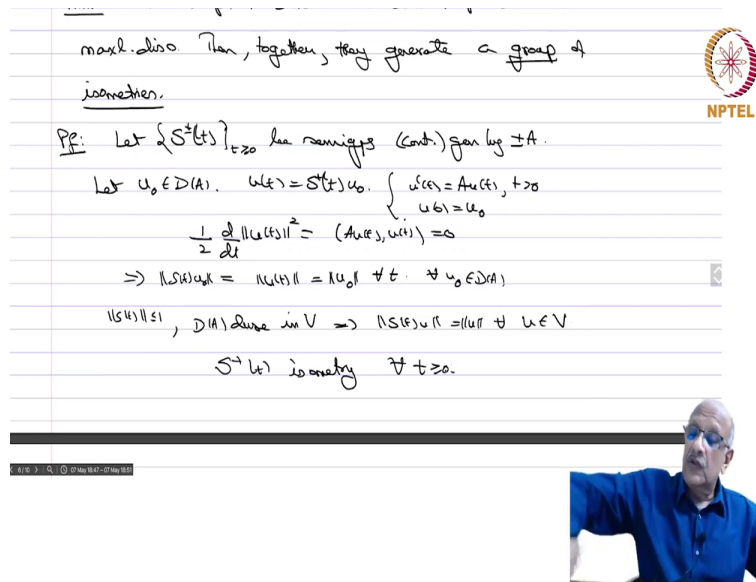 maxl. diss. Then, together, they generate a group of
isometries.
NPTEL
Pf: Let {S^±(t)}_{t≥0} be semigps (cont.) gen by ±A.
Let u₀ ∈ D(A). u(t) = S⁺(t)u₀. { u'(t) = Au(t), t>0
u(0) = u₀
1/2 d/dt ||u(t)||² = (Au(t), u(t)) = 0
⇒ ||S(t)u₀|| = ||u(t)|| = ||u₀|| ∀ t. ∀ u₀ ∈ D(A)
||S(t)|| ≤ 1, D(A) dense in V ⇒ ||S(t)u|| = ||u|| ∀ u ∈ V
S⁺(t) isometry ∀ t ≥ 0.
6/10 07 May 18:47–07 May 18:51